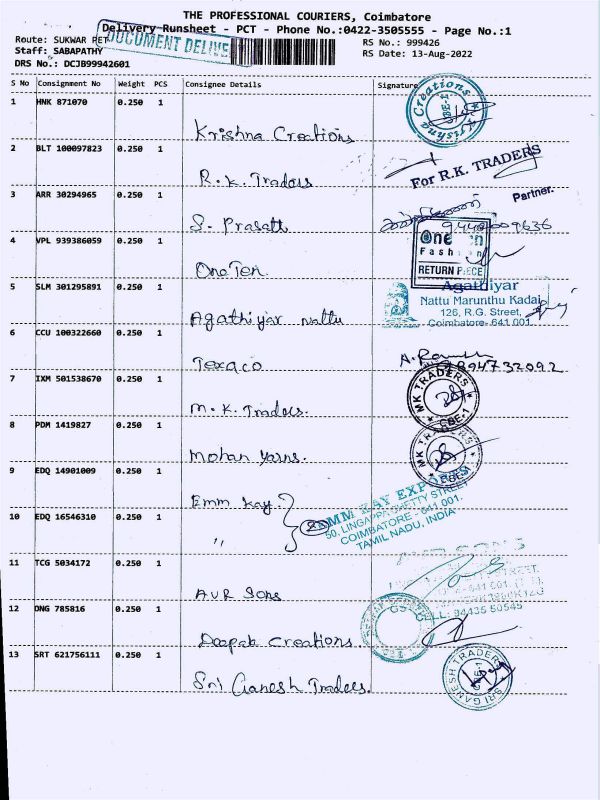 THE PROFESSIONAL COURIERS, Coimbatore
Delivery Runsheet - PCT - Phone No.:0422-3505555 - Page No.:1
Route: SUKWAR PET
DOCUMENT DELIVE
RS No.: 999426
Staff: SABAPATHY
RS Date: 13-Aug-2022
DRS No.: DCJB99942601
S No Consignment No Weight PCS Consignee Details Signature
1 HNK 871070 0.250 1
Krishna Creations
Krishna Creations
CBE-1
2 BLT 100097823 0.250 1
R.K. Traders
For R.K. TRADERS
Partner.
3 ARR 30294965 0.250 1
S. Prasatt
4 VPL 939386059 0.250 1
OneTen
One
Fashion
RETURN PIECE
5 SLM 301295891 0.250 1
Agathiyar nattu
Agathiyar
Nattu Marunthu Kadai
126, R.G. Street,
Coimbatore- 641 001
6 CCU 100322660 0.250 1
Texaco
9894732092
7 IXM 501538670 0.250 1
M.K. Traders.
MK TRADERS
CBE-1
8 PDM 1419827 0.250 1
Mohan Yarns.
MK TRADERS
CBE-1
9 EDQ 14901009 0.250 1
Emm Kay
EMM KAY EXPORTS
50, LINGAPPA CHETTY STREET
COIMBATORE - 641 001.
TAMIL NADU, INDIA
10 EDQ 16546310 0.250 1
"
11 TCG 5034172 0.250 1
AVR Sons
AVR SONS
STREET.
CELL: 94435 50545
12 ONG 785816 0.250 1
Deepak Creations
13 SRT 621756111 0.250 1
Sri Ganesh Traders.
SRI GANESH TRADERS
CBE-1